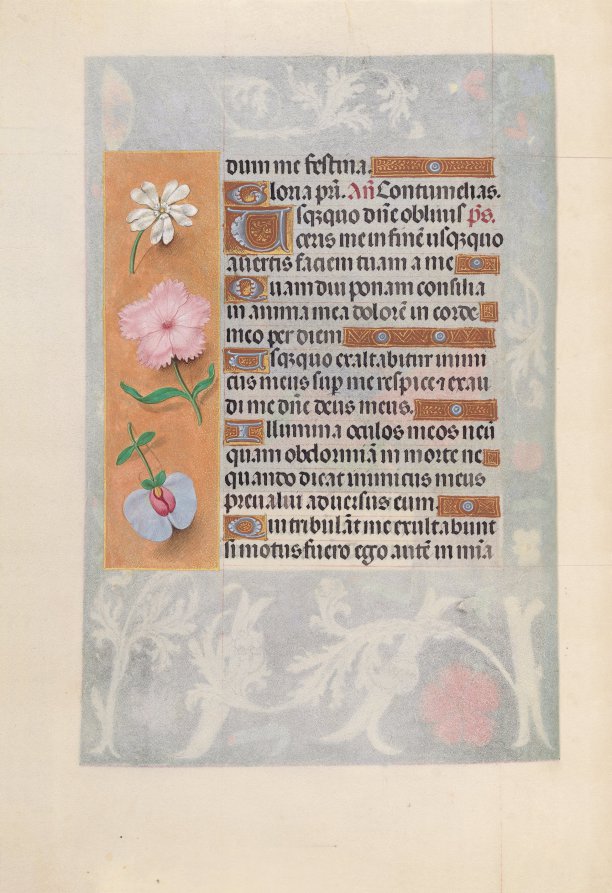 dum me festina.
Gloria pr̄i. An̄ Contumelias.
Usq3quo dn̄e obliuis p̄s.
ceris me in finē usq3quo
auertis faciem tuam a me
Quam diu ponam consilia
in anima mea dolorē in corde
meo per diem
Usq3quo exaltabitur inimi
cus meus sup̱ me respice ⁊ exau
di me dn̄e deus meus.
Illumina oculos meos neū
quam obdormiā in morte ne
quando dicat inimicus meus
preualui aduersus eum.
Qui tribulāt me exultabunt
si motus fuero ego autē in mīa